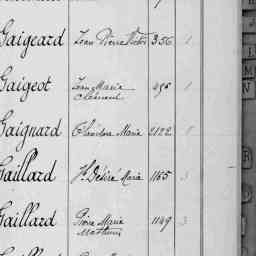 Gaigeard Jean Pierre Victor 356 1
Gaigeot Jean Marie 495 1
Clément
Gaignard Théodore Marie 2122 1
Gaillard Hte Désiré Marie 1165 3
Gaillard Pierre Marie 1149 3
Mathurin